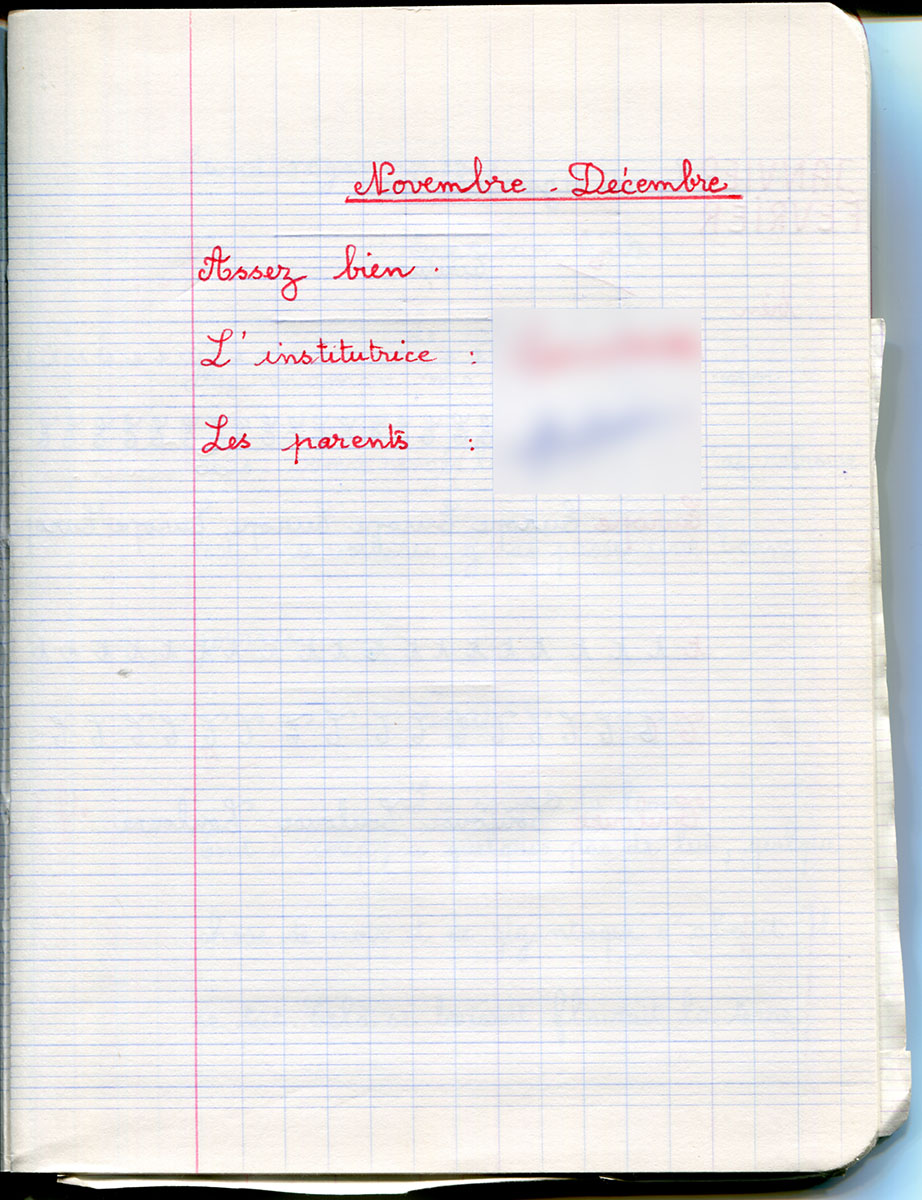 Novembre - Décembre
Assez bien.
L'institutrice :
Les parents :